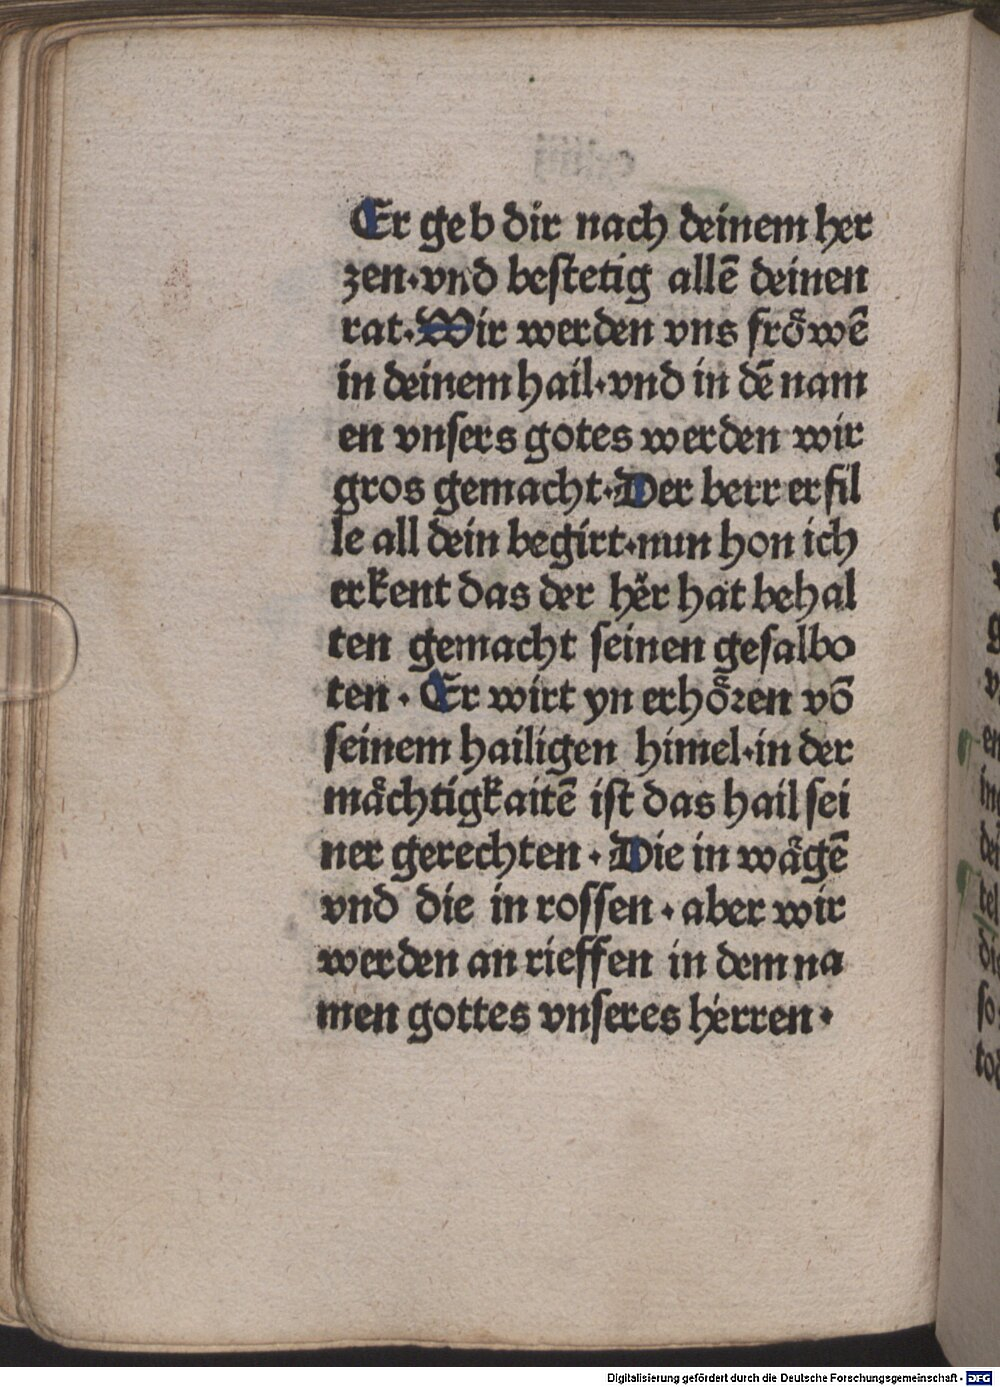 Er geb dir nach deinem her
zen·vnd bestetig allē deinen
rat·Wir werden vns froͤwē
in deinem hail·vnd in dē nam
en vnsers gotes werden wir
gros gemacht·Der berr erfil
le all dein begirt·nun hon ich
erkent das der heͤr hat behal
ten gemacht seinen gesalbo
ten · Er wirt yn erhoͤꝛen vō
seinem hailigen himel·in der
maͤchtigkaitē ist das hail sei
ner gerechten · Die in waͤgē
vnd die in rossen · aber wir
werden an rieffen in dem na
men gottes vnseres herren ·
Digitalisierung gefördert durch die Deutsche Forschungsgemeinschaft - DFG